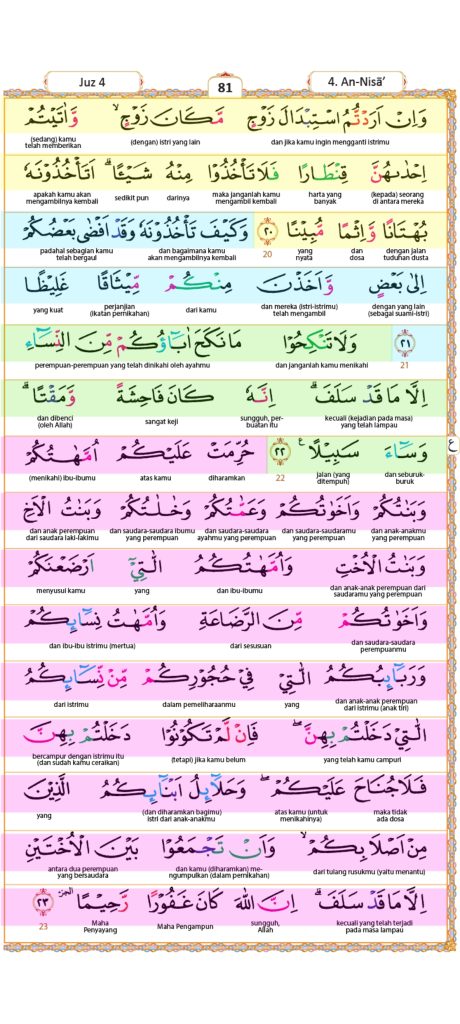 Juz 4
81
4. An-Nisā’
وَاِنْ اَرَدْتُّمُ اسْتِبْدَالَ زَوْجٍ مَّكَانَ زَوْجٍۙ وَّاٰتَيْتُمْ
dan jika kamu ingin mengganti istrimu (dengan) istri yang lain (sedang) kamu telah memberikan
اِحْدٰىهُنَّ قِنْطَارًا فَلَا تَأْخُذُوْا مِنْهُ شَيْـًٔاۗ اَتَأْخُذُوْنَهٗ
(kepada) seorang di antara mereka harta yang banyak maka janganlah kamu mengambil kembali darinya sedikit pun apakah kamu akan mengambilnya kembali
بُهْتَانًا وَّاِثْمًا مُّبِيْنًا ٢٠ وَكَيْفَ تَأْخُذُوْنَهٗ وَقَدْ اَفْضٰى بَعْضُكُمْ
dengan jalan tuduhan dusta dan dosa yang nyata 20 dan bagaimana kamu akan mengambilnya kembali padahal sebagian kamu telah bergaul
اِلٰى بَعْضٍ وَّاَخَذْنَ مِنْكُمْ مِّيْثَاقًا غَلِيْظًا
dengan yang lain (sebagai suami-istri) dan mereka (istri-istrimu) telah mengambil dari kamu perjanjian (ikatan pernikahan) yang kuat
٢١ وَلَا تَنْكِحُوْا مَا نَكَحَ اٰبَاۤؤُكُمْ مِّنَ النِّسَاۤءِ
21 dan janganlah kamu menikahi perempuan-perempuan yang telah dinikahi oleh ayahmu
اِلَّا مَا قَدْ سَلَفَۗ اِنَّهٗ كَانَ فَاحِشَةً وَّمَقْتًاۗ
kecuali (kejadian pada masa) yang telah lampau sungguh, perbuatan itu sangat keji dan dibenci (oleh Allah)
وَسَاۤءَ سَبِيْلًا ࣖ ٢٢ حُرِّمَتْ عَلَيْكُمْ اُمَّهٰتُكُمْ
ع
dan seburuk-buruk jalan (yang ditempuh) 22 diharamkan atas kamu (menikahi) ibu-ibumu
وَبَنٰتُكُمْ وَاَخَوٰتُكُمْ وَعَمّٰتُكُمْ وَخٰلٰتُكُمْ وَبَنٰتُ الْاَخِ
dan anak-anakmu yang perempuan dan saudara-saudaramu yang perempuan dan saudara-saudara ayahmu yang perempuan dan saudara-saudara ibumu yang perempuan dan anak perempuan dari saudara laki-lakimu
وَبَنٰتُ الْاُخْتِ وَاُمَّهٰتُكُمُ الّٰتِيْٓ اَرْضَعْنَكُمْ
dan anak-anak perempuan dari saudaramu yang perempuan dan ibu-ibumu yang menyusui kamu
وَاَخَوٰتُكُمْ مِّنَ الرَّضَاعَةِ وَاُمَّهٰتُ نِسَاۤىِٕكُمْ
dan saudara-saudara perempuanmu dari sesusuan dan ibu-ibu istrimu (mertua)
وَرَبَاۤىِٕبُكُمُ الّٰتِيْ فِيْ حُجُوْرِكُمْ مِّنْ نِّسَاۤىِٕكُمُ
dan anak-anak perempuan dari istrimu (anak tiri) yang dalam pemeliharaanmu dari istrimu
الّٰتِيْ دَخَلْتُمْ بِهِنَّۖ فَاِنْ لَّمْ تَكُوْنُوْا دَخَلْتُمْ بِهِنَّ
yang telah kamu campuri (tetapi) jika kamu belum bercampur dengan istrimu itu (dan sudah kamu ceraikan)
فَلَا جُنَاحَ عَلَيْكُمْۖ وَحَلَاۤىِٕلُ اَبْنَاۤىِٕكُمُ الَّذِيْنَ
maka tidak ada dosa atas kamu (untuk menikahinya) (dan diharamkan bagimu) istri dari anak-anakmu yang
مِنْ اَصْلَابِكُمْۙ وَاَنْ تَجْمَعُوْا بَيْنَ الْاُخْتَيْنِ
dari tulang rusukmu (yaitu menantu) dan kamu (diharamkan) mengumpulkan (dalam pernikahan) antara dua perempuan yang bersaudara
اِلَّا مَا قَدْ سَلَفَۗ اِنَّ اللّٰهَ كَانَ غَفُوْرًا رَّحِيْمًا ٢٣
kecuali yang telah terjadi pada masa lampau sungguh, Allah Maha Pengampun Maha Penyayang 23